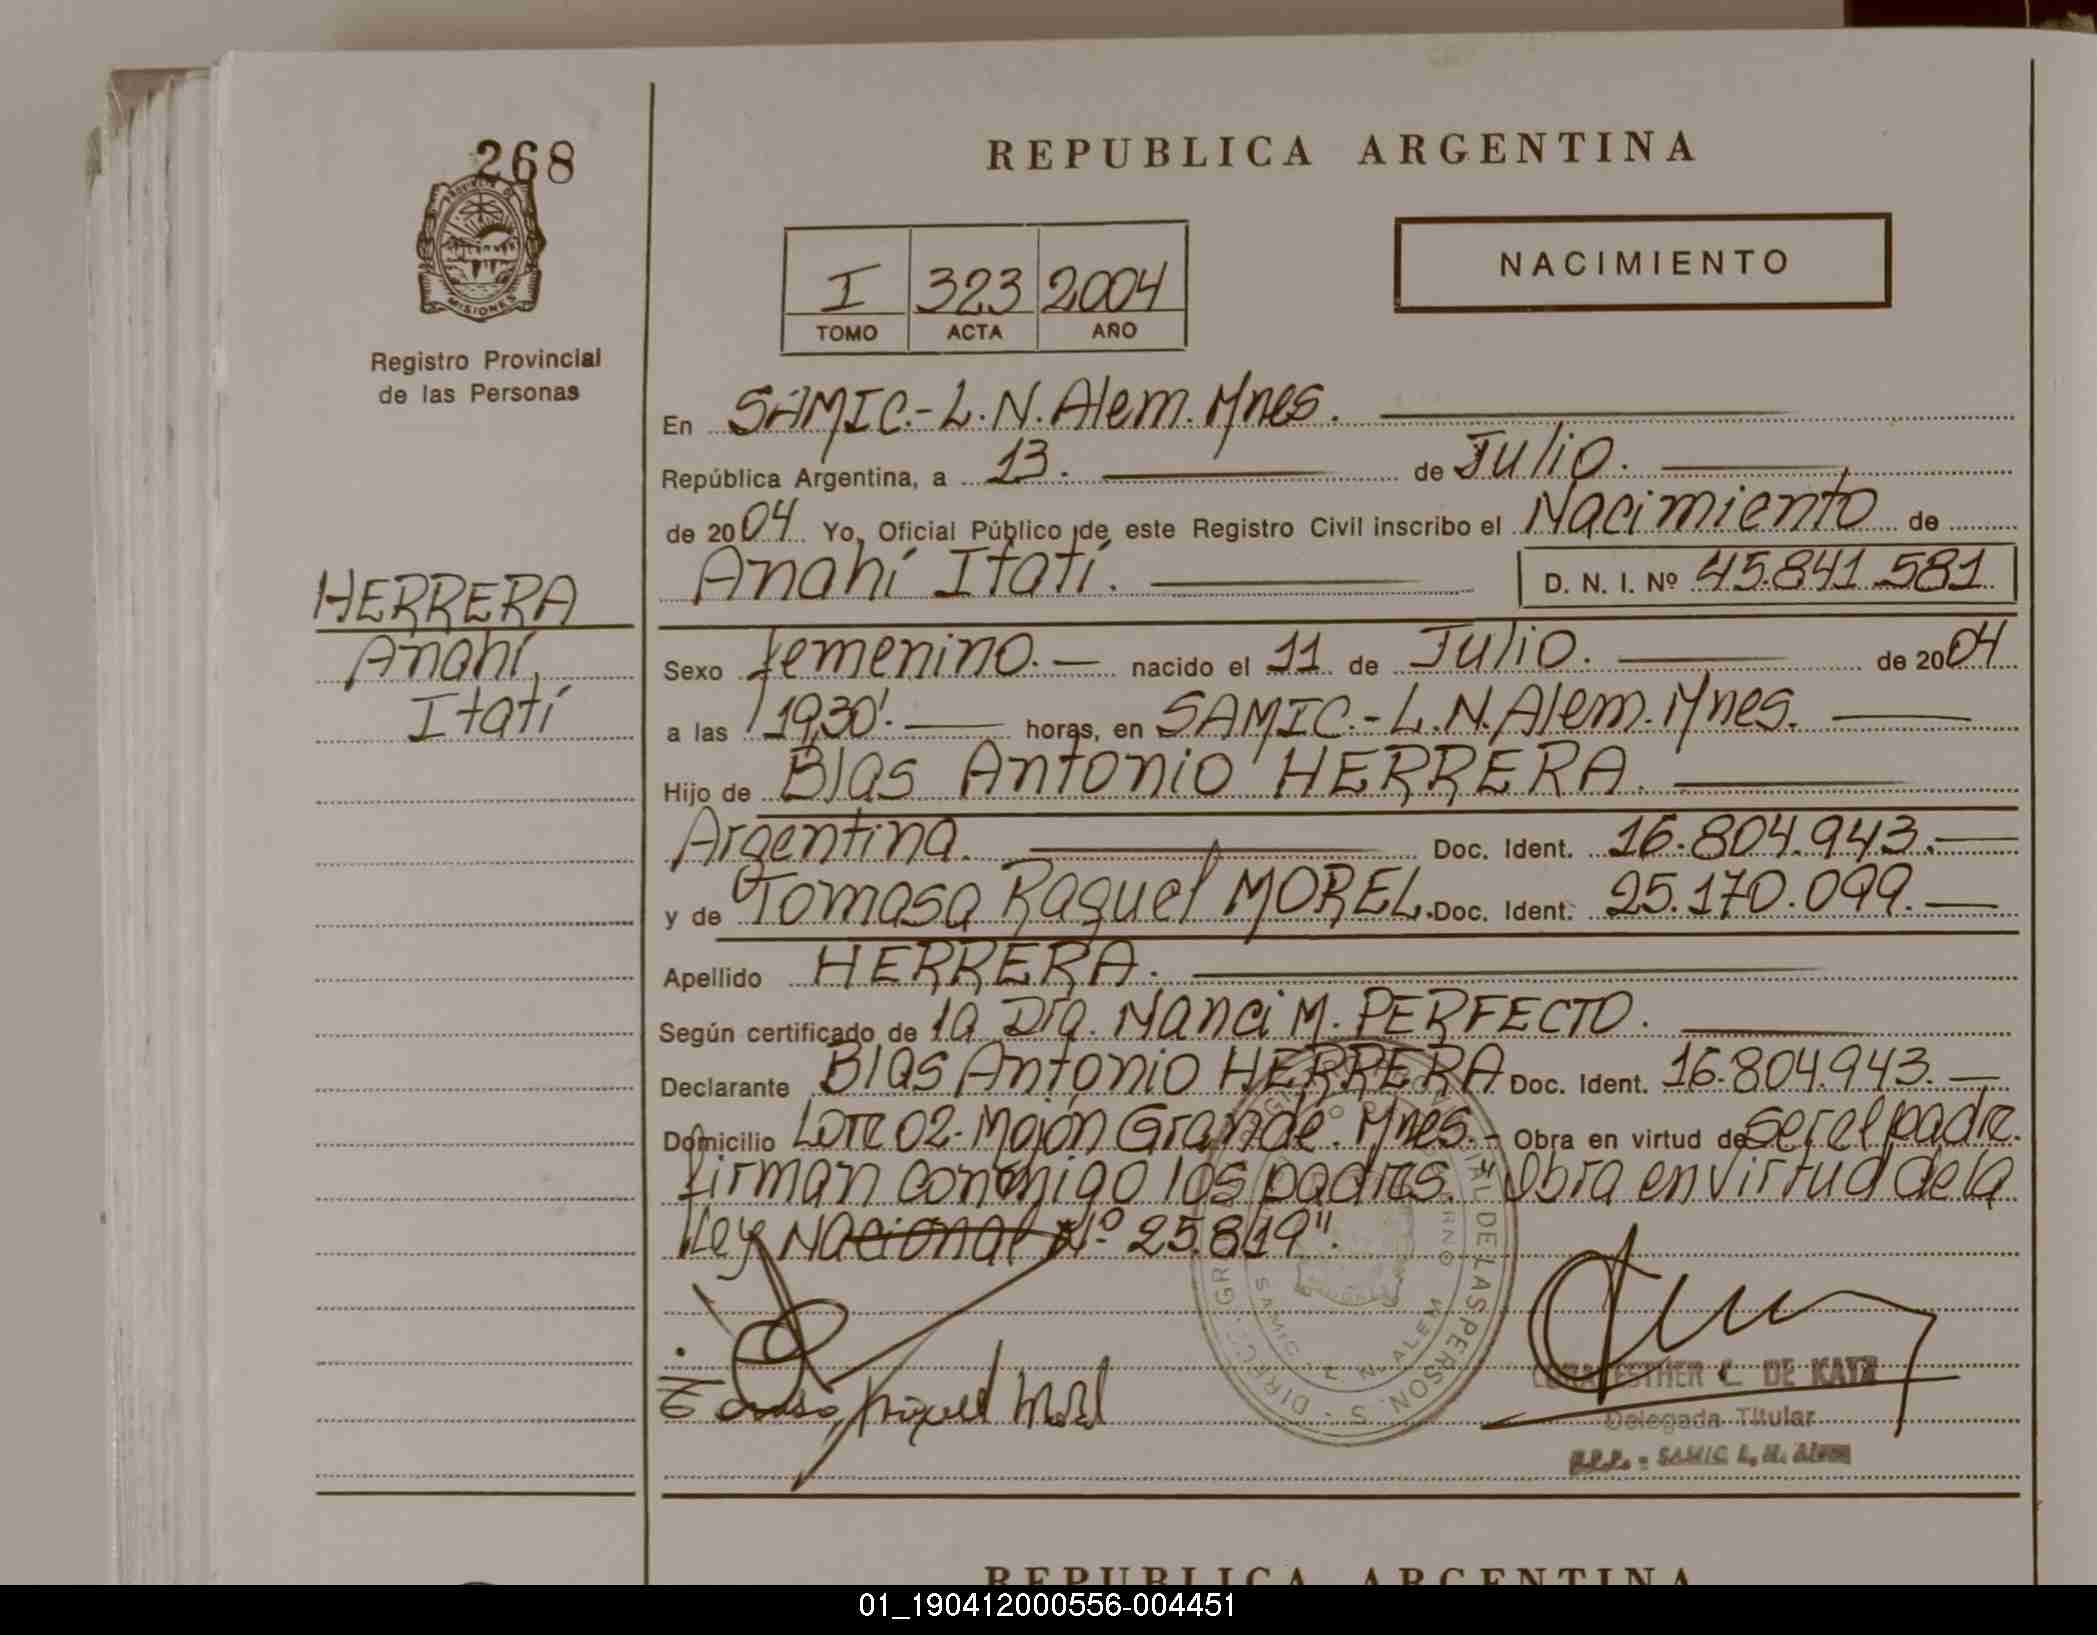 268
PROVINCIA DE
MISIONES
Registro Provincial
de las Personas
HERRERA
Anahí,
Itatí
REPUBLICA ARGENTINA
I 323 2004
TOMO ACTA AÑO
NACIMIENTO
En SAMIC.-L.N.Alem.Mnes.
República Argentina, a 13. de Julio.
de 2004 Yo, Oficial Público de este Registro Civil inscribo el Nacimiento de
Anahí Itatí. D. N. I. Nº 45.841.581
Sexo femenino. nacido el 11 de Julio. de 2004
a las 19,30'. horas, en SAMIC.-L.N.Alem.Mnes.
Hijo de Blas Antonio HERRERA.
Argentina. Doc. Ident. 16.804.943.
y de Tomasa Raquel MOREL. Doc. Ident. 25.170.099.
Apellido HERRERA.
Según certificado de la Dra. Nanci M. PERFECTO.
Declarante Blas Antonio HERRERA Doc. Ident. 16.804.943.
Domicilio Lote 02-Mojón Grande. Mnes.- Obra en virtud de ser el padre.
firman conmigo los padres. "Obra en virtud de la
Ley Nacional Nº 25.819".
SAMIC - L. N. ALEM
ESTHER C. DE KATZ
Delegada Titular
SAMIC L. N. Alem
REPUBLICA ARGENTINA
01_190412000556-004451